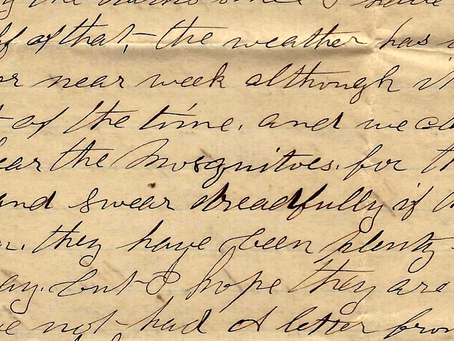 the
of that, - the weather has
or near week although it
of the time. and we
the Mosquitoes. for
and swear dreadfully if
they have been plenty
but I hope they are
not had A letter from